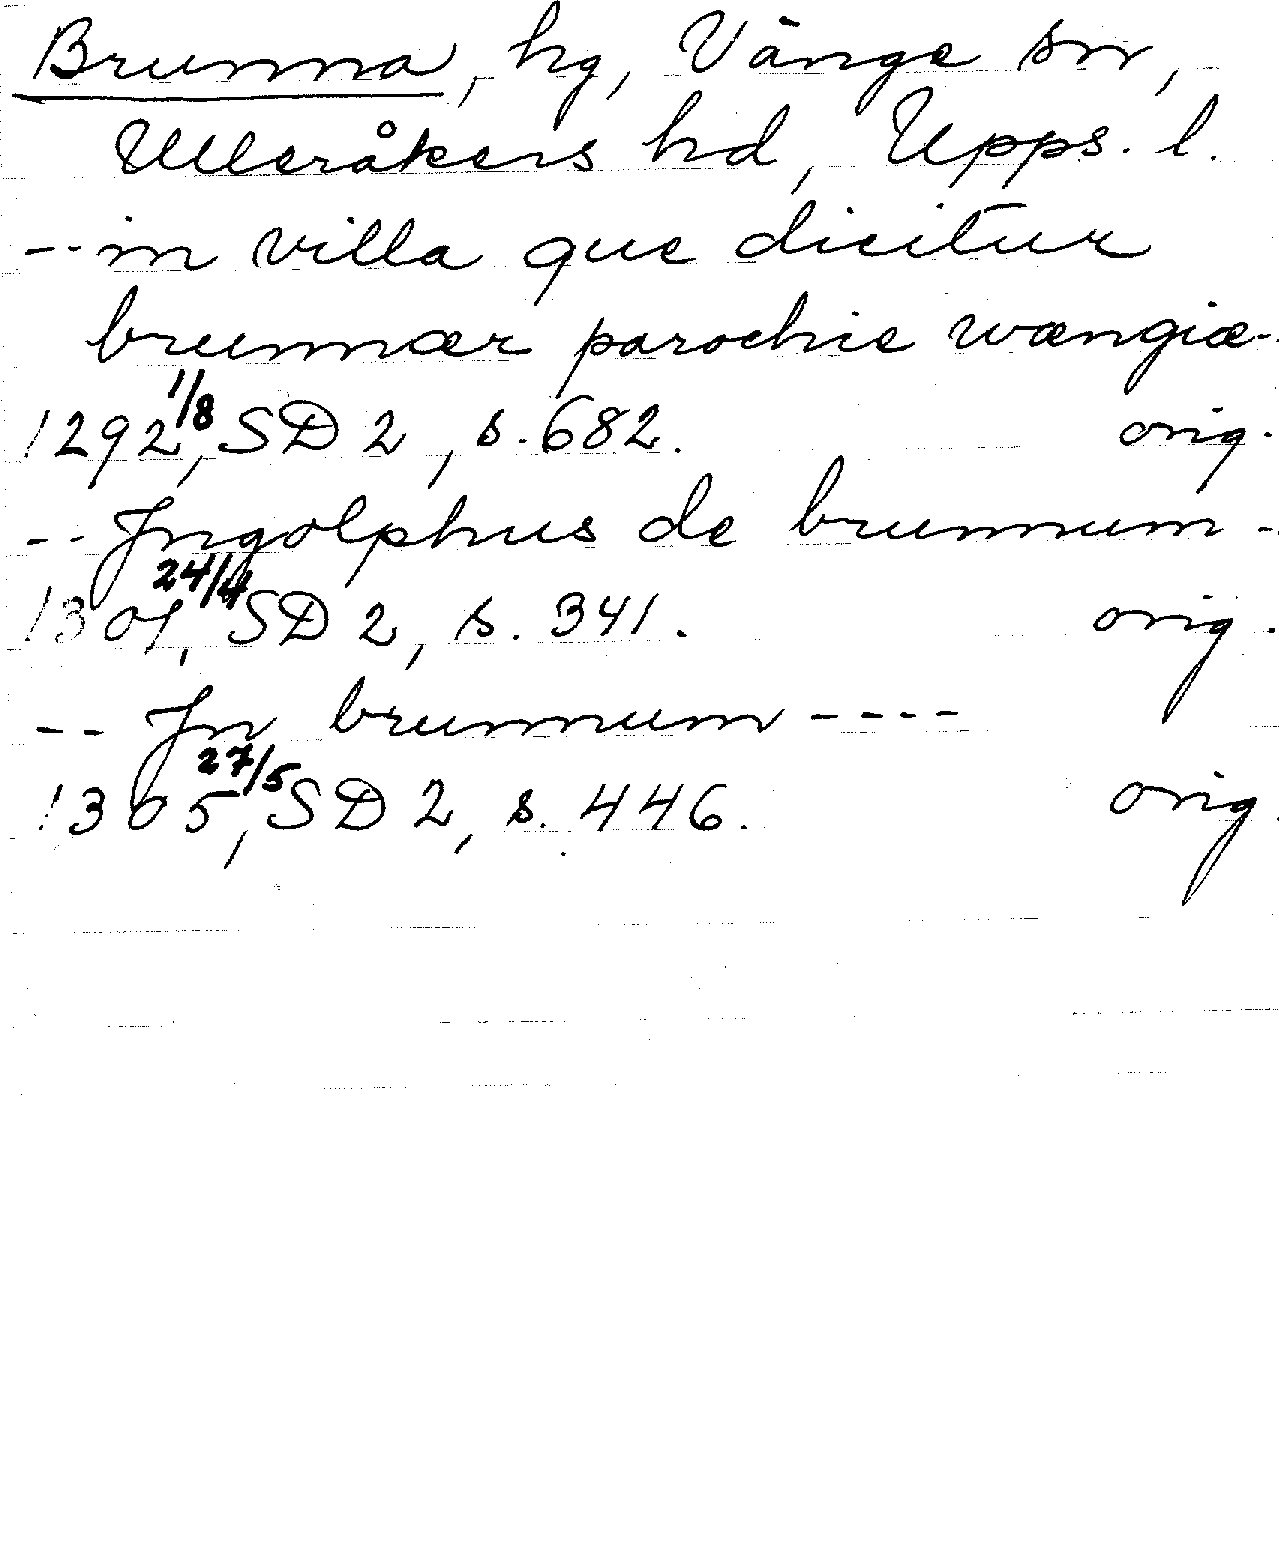 Brunna, hg, Vänge sn,
Ulleråkers hd, Upps. l.
-- in villa que dicitur
brunnær parochie wængiæ -
1292 1/8, SD 2, s. 682. orig.
-- Jngolphus de brunnum -
1301 24/4, SD 2, s. 341. orig.
-- Jn brunnum ----
1305 27/5, SD 2, s. 446. orig.